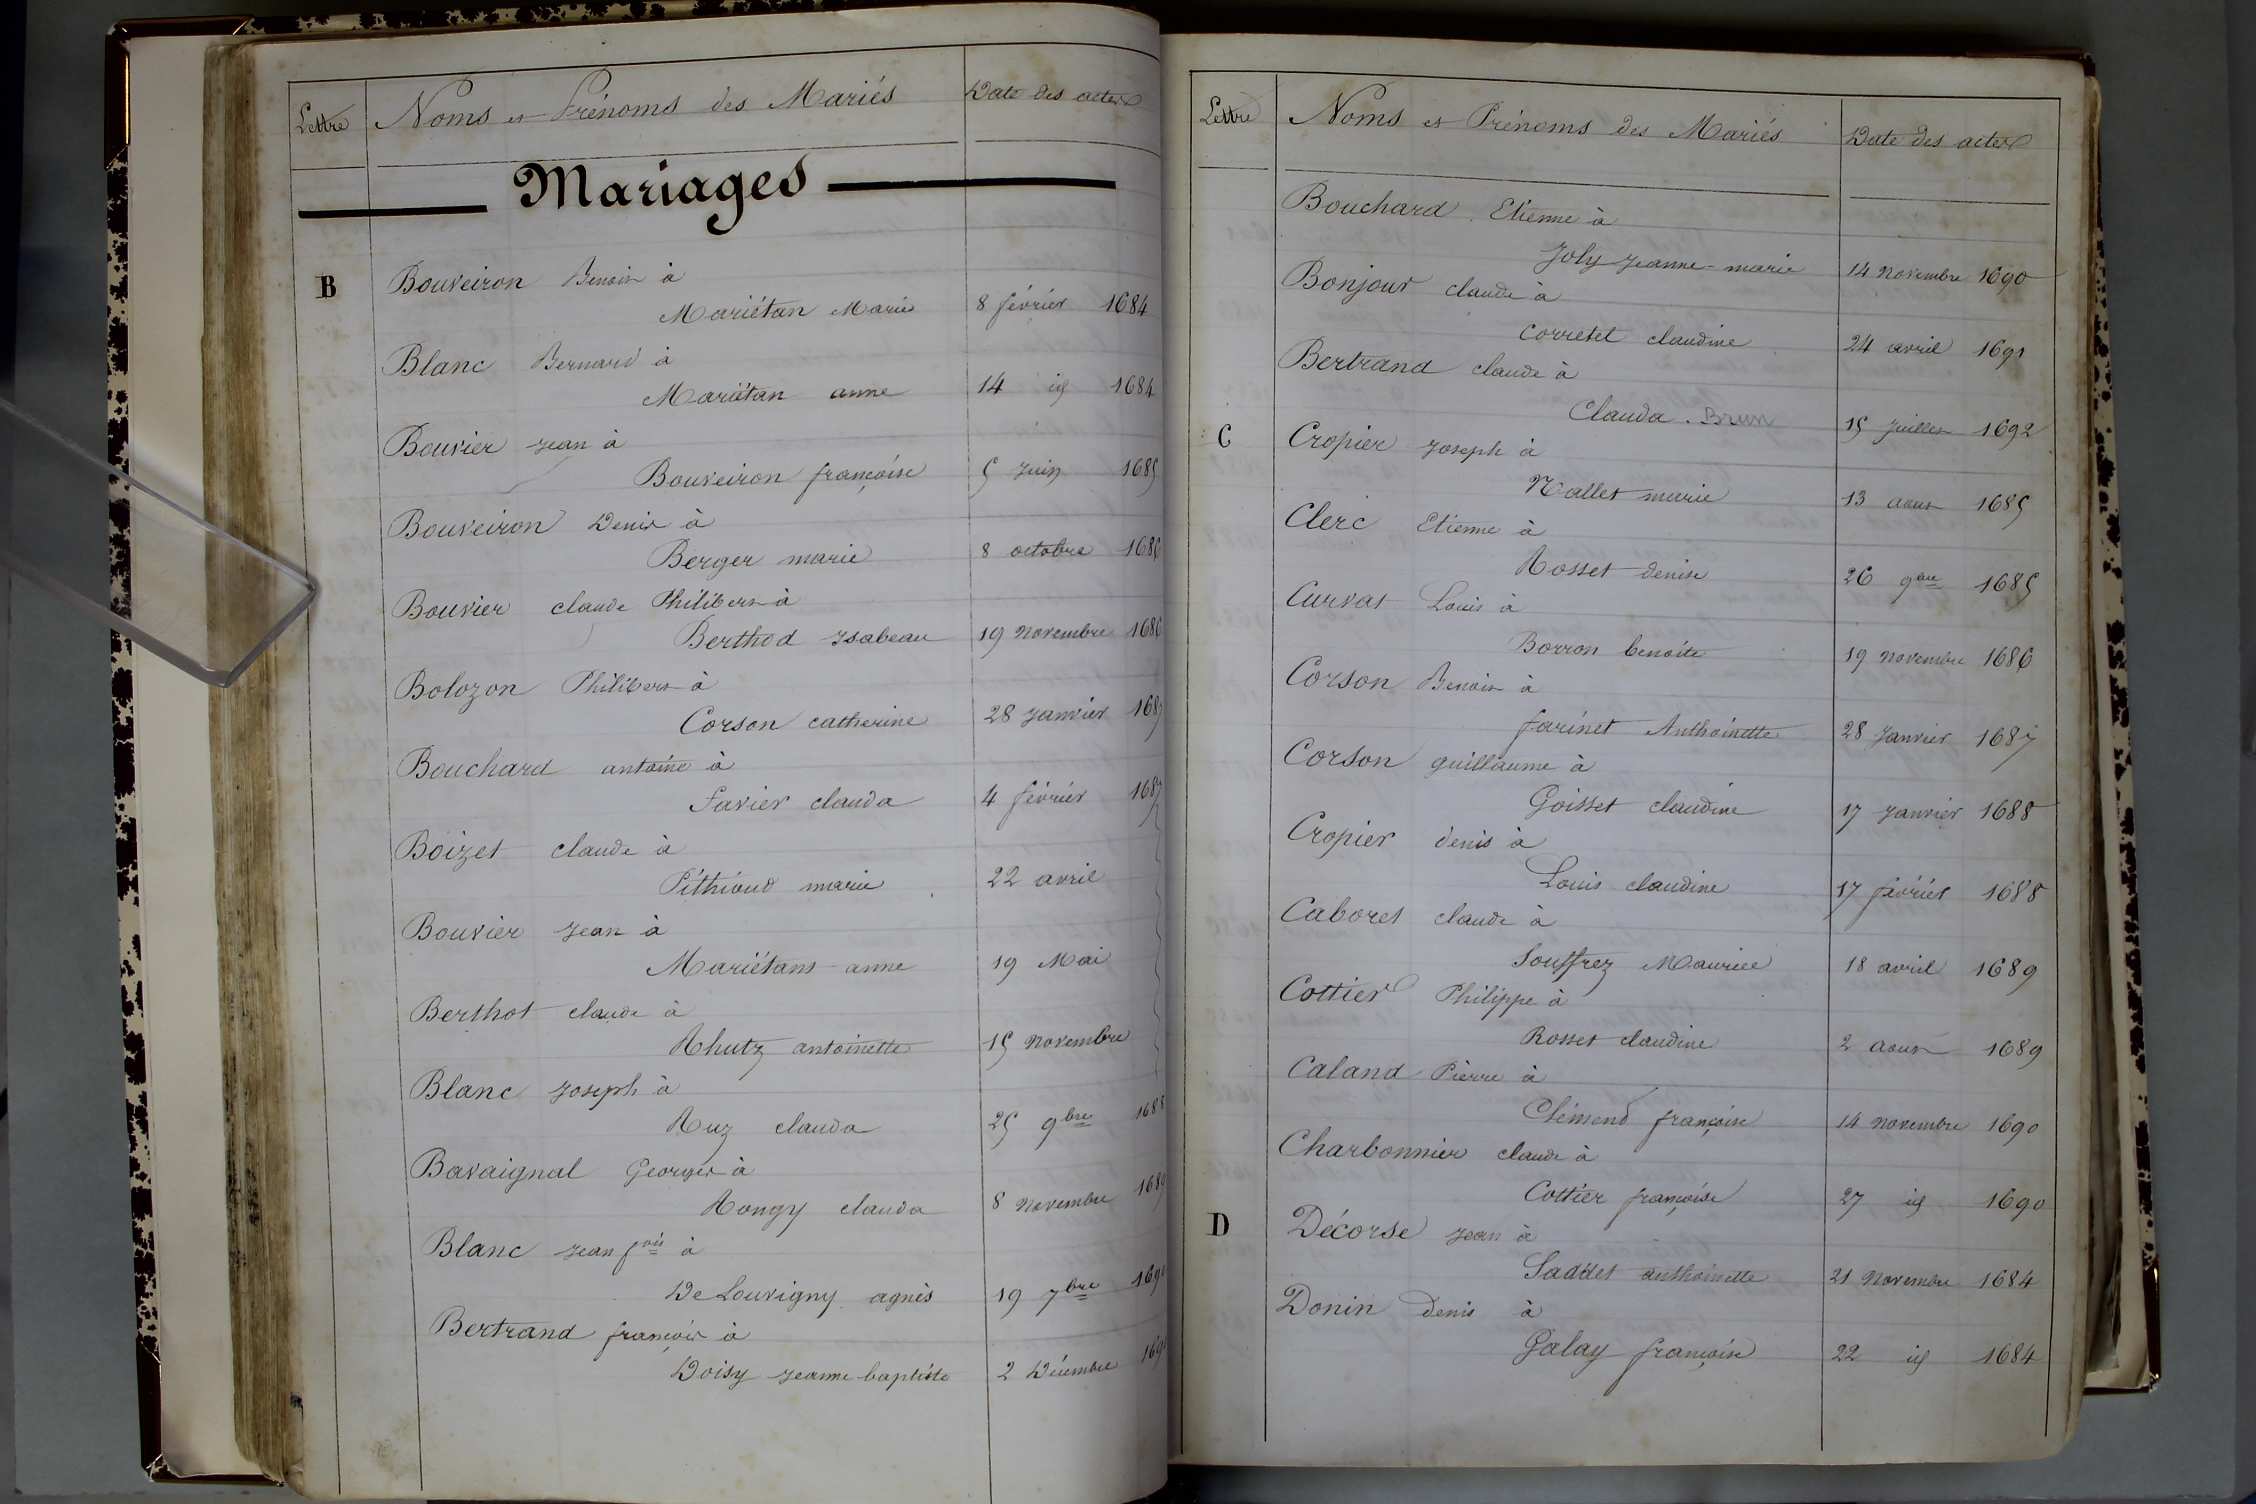 Lettre Noms et Prénoms des Mariés Date des actes
Mariages
B Bouveiron Benoit à
Mariétan Marie 8 février 1684
Blanc Bernard à
Mariétan anne 14 id 1684
Bouvier jean à
Bouveiron françoise 5 juin 1685
Bouveiron Denis à
Berger marie 8 octobre 1686
Bouvier claude Philibert à
Berthod ysabeau 19 novembre 1686
Bolozon Philibert à
Corson catherine 28 janvier 1687
Bouchard antoine à
favier clauda 4 février 1687
Boizet claude à
Péthioud marie 22 avril
Bouvier jean à
Mariétans anne 19 Mai
Berthot claude à
Rhutz antoinette 15 novembre
Blanc joseph à
Ruz clauda 25 9bre 1688
Bavaignal Georges à
Rongy clauda 8 novembre 1689
Blanc jean fois à
De Louvigny agnès 19 7bre 1690
Bertrand françois à
Doisy jeanne baptiste 2 Décembre
Lettre Noms et Prénoms des Mariés Date des actes
Bouchard Etienne à
Joly jeanne-marie 14 novembre 1690
Bonjour claude à
Corretet claudine 24 avril 1691
Bertrand claude à
Clauda . Brun 15 juillet 1692
C Cropier joseph à
Nallet marie 13 aout 1685
Clerc Etienne à
Rosset denise 26 9bre 1685
Curvat Louis à
Borron benoite 19 novembre 1686
Corson Benoit à
farinet Anthoinette 28 janvier 1687
Corson guillaume à
Goisset claudine 17 janvier 1688
Cropier denis à
Louis claudine 17 février 1688
Caboret claude à
Souffrez Maurice 18 avril 1689
Cottier Philippe à
Rosset claudine 2 aout 1689
Caland Pierre à
Clémend françoise 14 novembre 1690
Charbonnier claude à
Cottier françoise 27 id 1690
D Décorse jean à
Saddet anthoinette 21 novembre 1684
Donin denis à
Galay françoise 22 id 1684